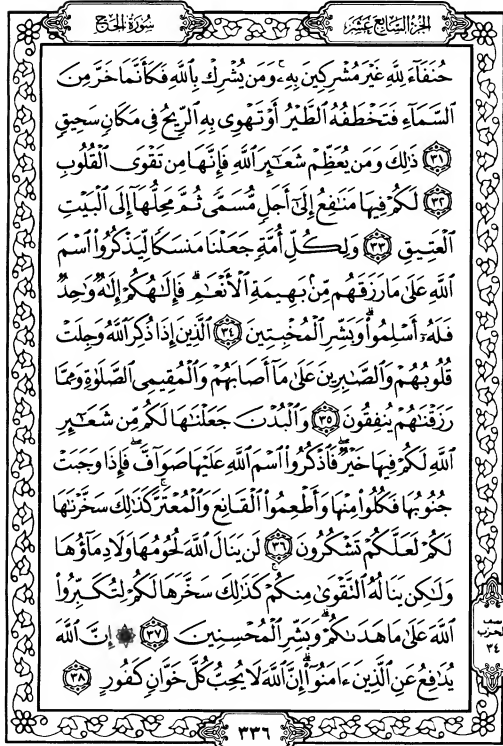 سُورَةُ الحَجِّ
الجُزءُ السَّابِعُ عَشَرَ
حُنَفَآءَ لِلَّهِ غَيْرَ مُشْرِكِينَ بِهِۦۚ وَمَن يُشْرِكْ بِٱللَّهِ فَكَأَنَّمَا خَرَّ مِنَ
ٱلسَّمَآءِ فَتَخْطَفُهُ ٱلطَّيْرُ أَوْ تَهْوِى بِهِ ٱلرِّيحُ فِى مَكَانٍ سَحِيقٍ
٣١ ذَٰلِكَ وَمَن يُعَظِّمْ شَعَٰٓئِرَ ٱللَّهِ فَإِنَّهَا مِن تَقْوَى ٱلْقُلُوبِ
٣٢ لَكُمْ فِيهَا مَنَٰفِعُ إِلَىٰٓ أَجَلٍ مُّسَمًّى ثُمَّ مَحِلُّهَآ إِلَى ٱلْبَيْتِ
ٱلْعَتِيقِ ٣٣ وَلِكُلِّ أُمَّةٍ جَعَلْنَا مَنسَكًا لِّيَذْكُرُوا۟ ٱسْمَ
ٱللَّهِ عَلَىٰ مَا رَزَقَهُم مِّنۢ بَهِيمَةِ ٱلْأَنْعَٰمِۗ فَإِلَٰهُكُمْ إِلَٰهٌ وَٰحِدٌ
فَلَهُۥٓ أَسْلِمُوا۟ۗ وَبَشِّرِ ٱلْمُخْبِتِينَ ٣٤ ٱلَّذِينَ إِذَا ذُكِرَ ٱللَّهُ وَجِلَتْ
قُلُوبُهُمْ وَٱلصَّٰبِرِينَ عَلَىٰ مَآ أَصَابَهُمْ وَٱلْمُقِيمِى ٱلصَّلَوٰةِ وَمِمَّا
رَزَقْنَٰهُمْ يُنفِقُونَ ٣٥ وَٱلْبُدْنَ جَعَلْنَٰهَا لَكُم مِّن شَعَٰٓئِرِ
ٱللَّهِ لَكُمْ فِيهَا خَيْرٌۖ فَٱذْكُرُوا۟ ٱسْمَ ٱللَّهِ عَلَيْهَا صَوَآفَّۖ فَإِذَا وَجَبَتْ
جُنُوبُهَا فَكُلُوا۟ مِنْهَا وَأَطْعِمُوا۟ ٱلْقَانِعَ وَٱلْمُعْتَرَّۚ كَذَٰلِكَ سَخَّرْنَٰهَا
لَكُمْ لَعَلَّكُمْ تَشْكُرُونَ ٣٦ لَن يَنَالَ ٱللَّهَ لُحُومُهَا وَلَا دِمَآؤُهَا
وَلَٰكِن يَنَالُهُ ٱلتَّقْوَىٰ مِنكُمْۚ كَذَٰلِكَ سَخَّرَهَا لَكُمْ لِتُكَبِّرُوا۟
ٱللَّهَ عَلَىٰ مَا هَدَىٰكُمْۗ وَبَشِّرِ ٱلْمُحْسِنِينَ ٣٧ ۞ إِنَّ ٱللَّهَ
يُدَٰفِعُ عَنِ ٱلَّذِينَ ءَامَنُوٓا۟ۗ إِنَّ ٱللَّهَ لَا يُحِبُّ كُلَّ خَوَّانٍ كَفُورٍ ٣٨
نصف
الحزب
٣٤
٣٣٦